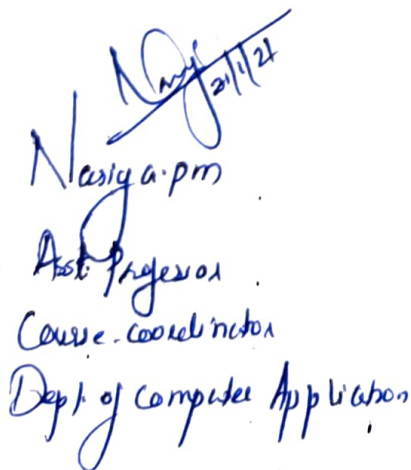 21/1/21
Nasiya.pm
Asst. Professor
Course-coordinator
Dept. of computer Application